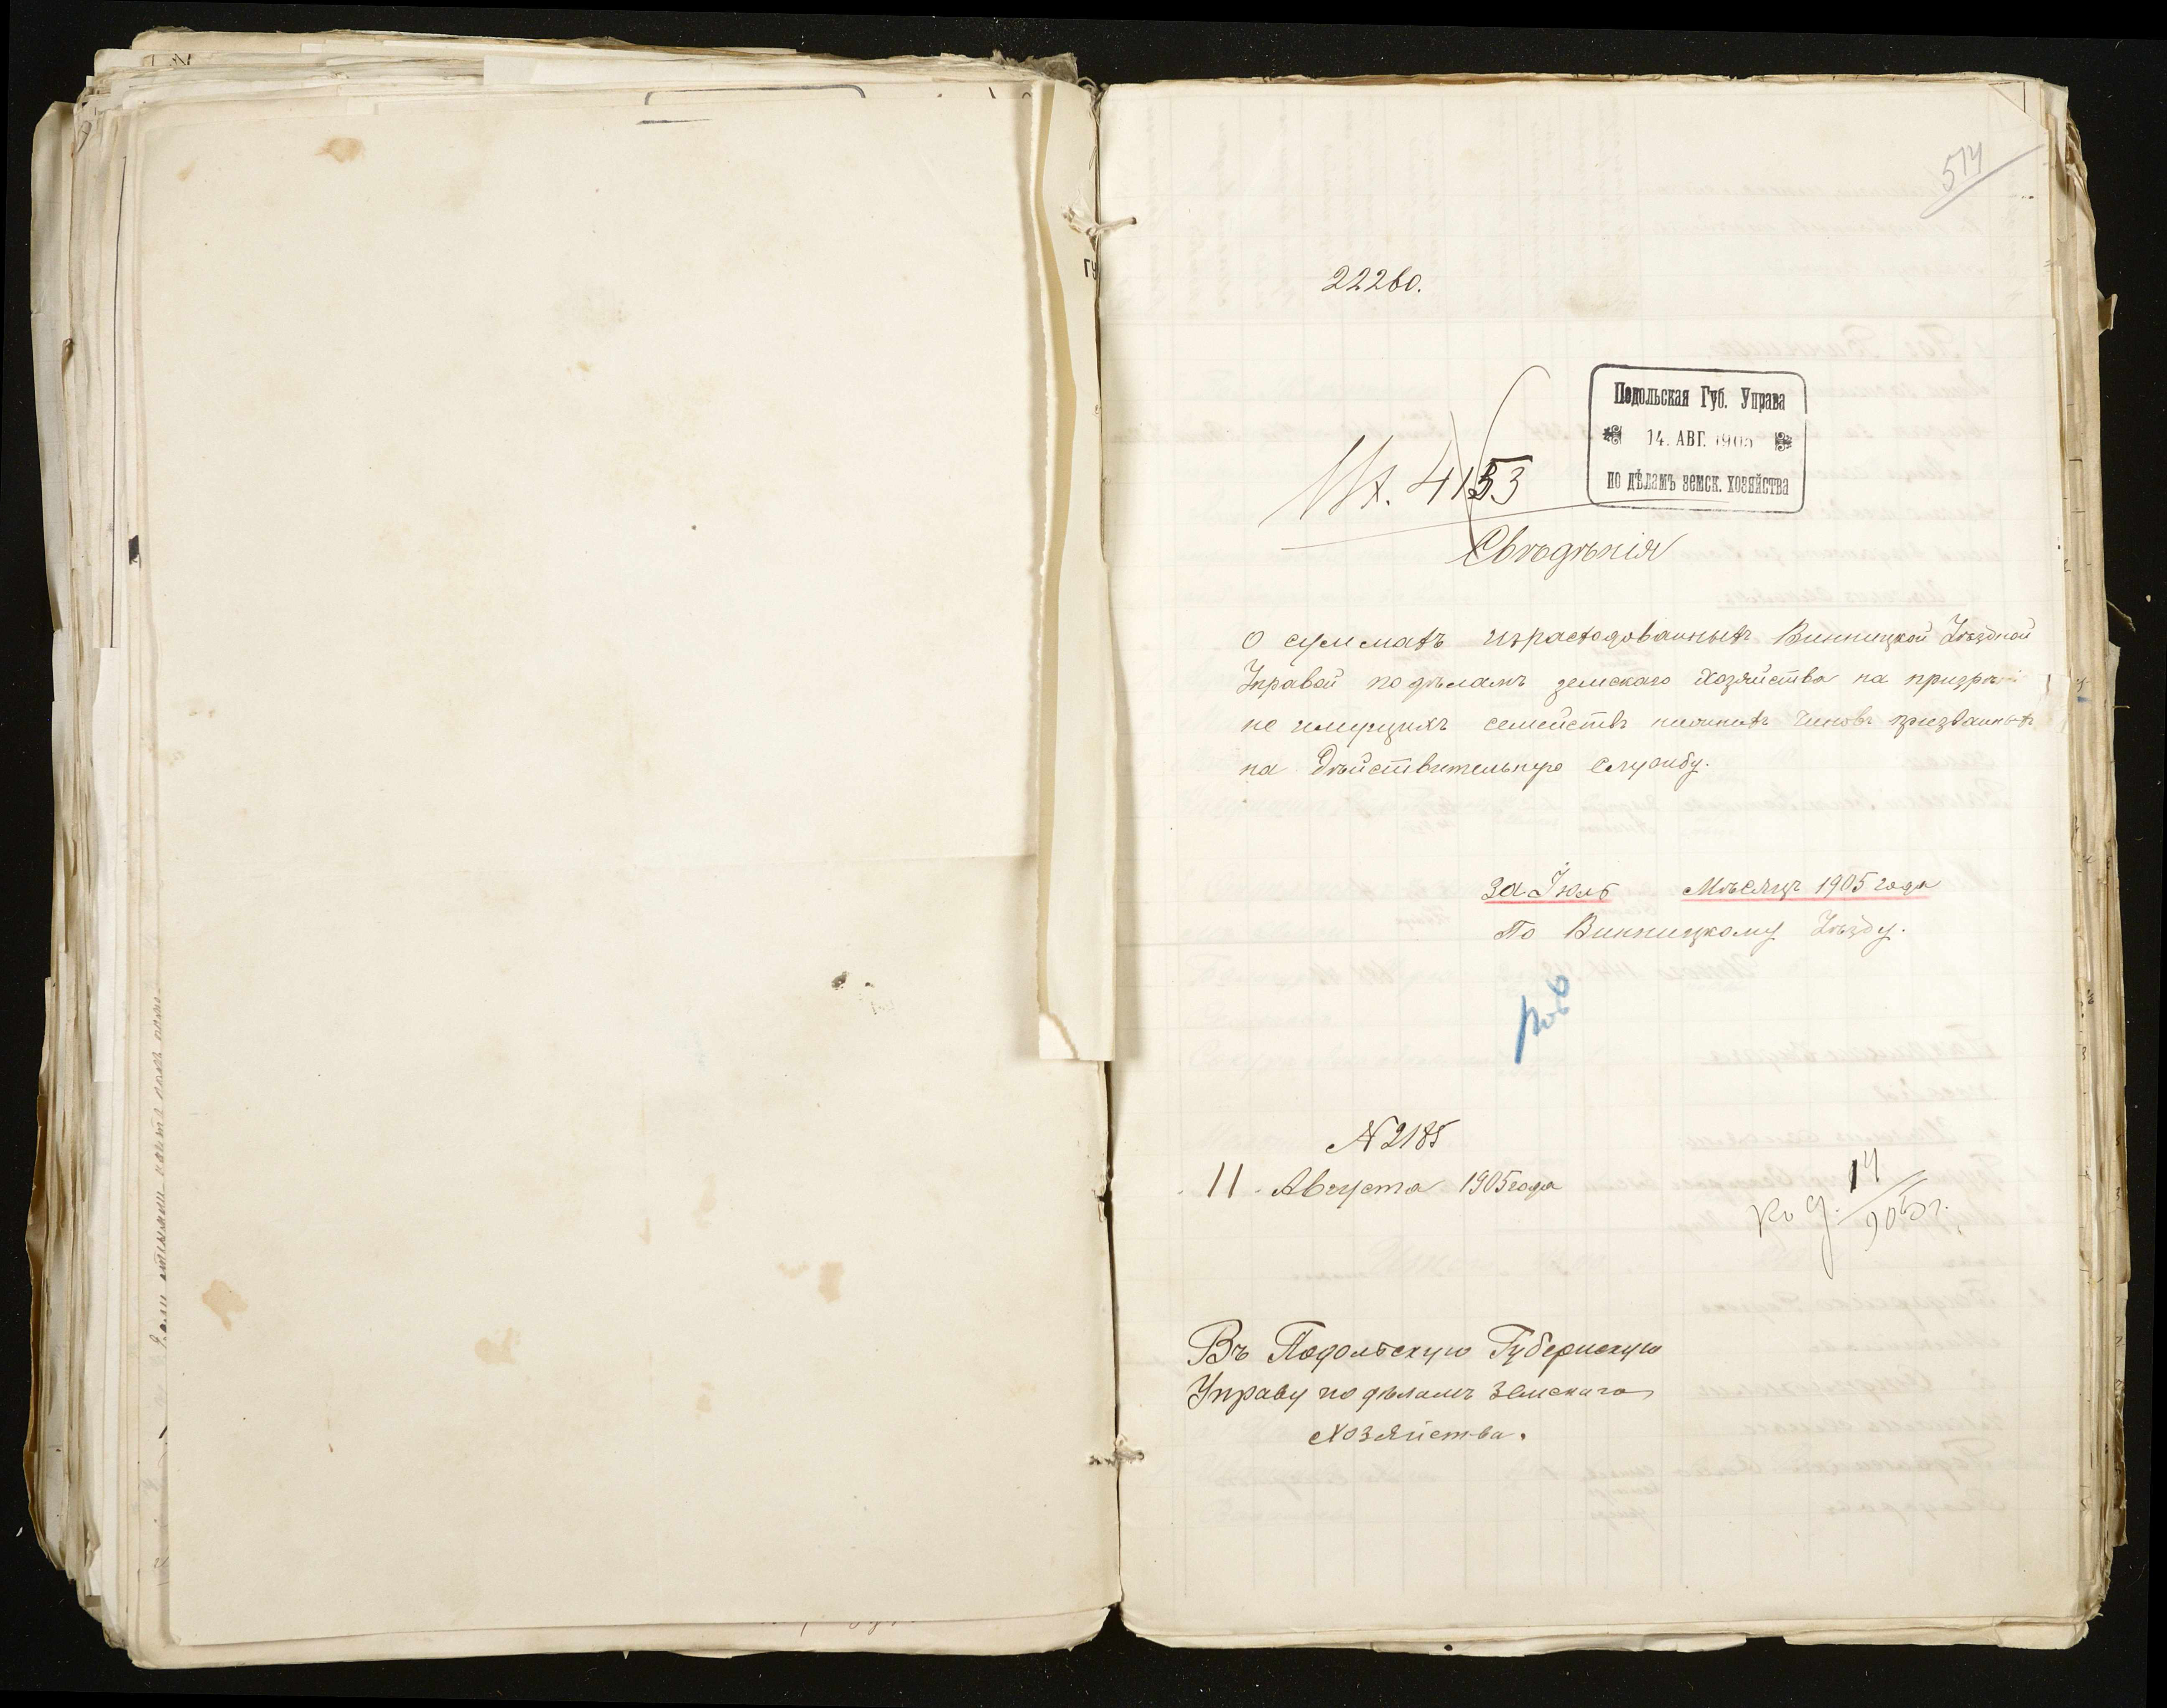 514
22260.
Подольская Губ. Управа
14. АВГ. 1905
по дѣламъ земск. хозяйства
4153
Свѣдѣнія
о суммахъ израсходованныхъ Винницкой Уѣздной
Управой по дѣламъ земскаго хозяйства на призрѣ
не имущихъ семействъ нижнихъ чиновъ призванныхъ
на дѣйствительную службу.
за Іюль Мѣсяцъ 1905 года
По Винницкому Уѣзду.
№ 2185
11 Августа 1905 года
14
905 г.
Въ Подольскую Губернскую
Управу по дѣламъ Земскаго
Хозяйства.